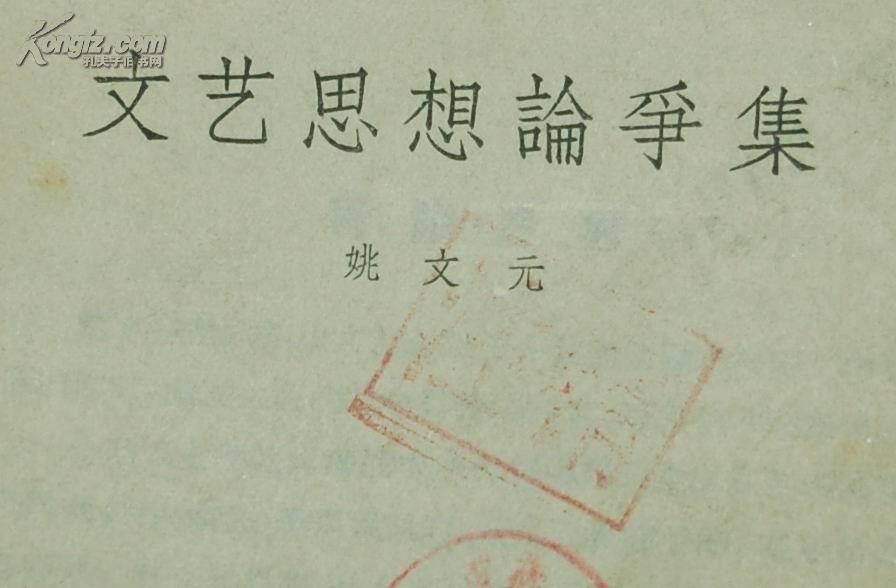 Kongfz.com
孔夫子旧书网
文艺思想論爭集
姚文元